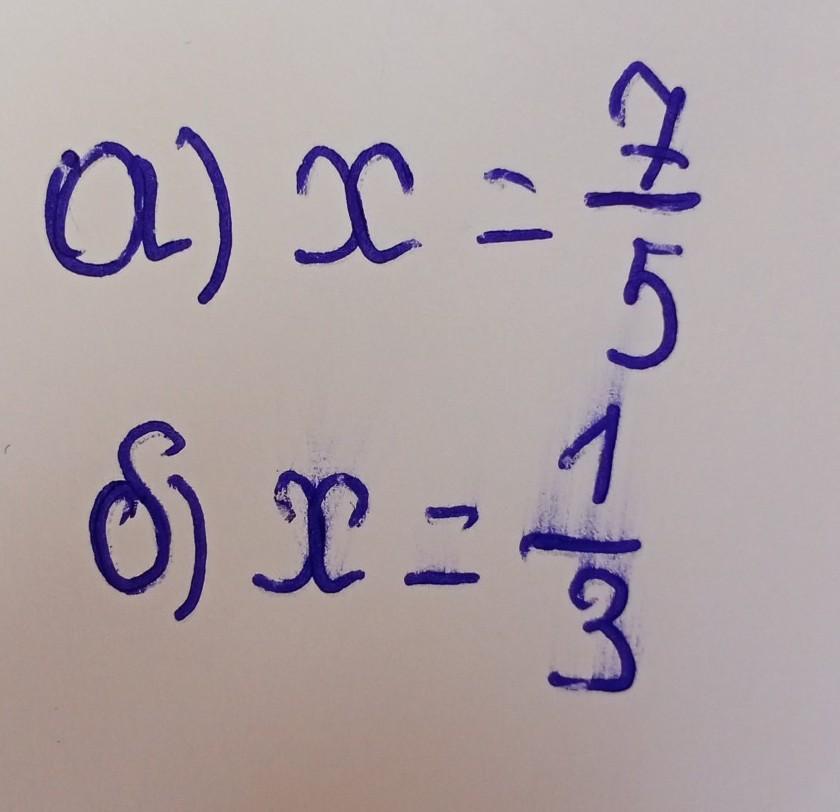 а) x = 7/5
б) x = 1/3